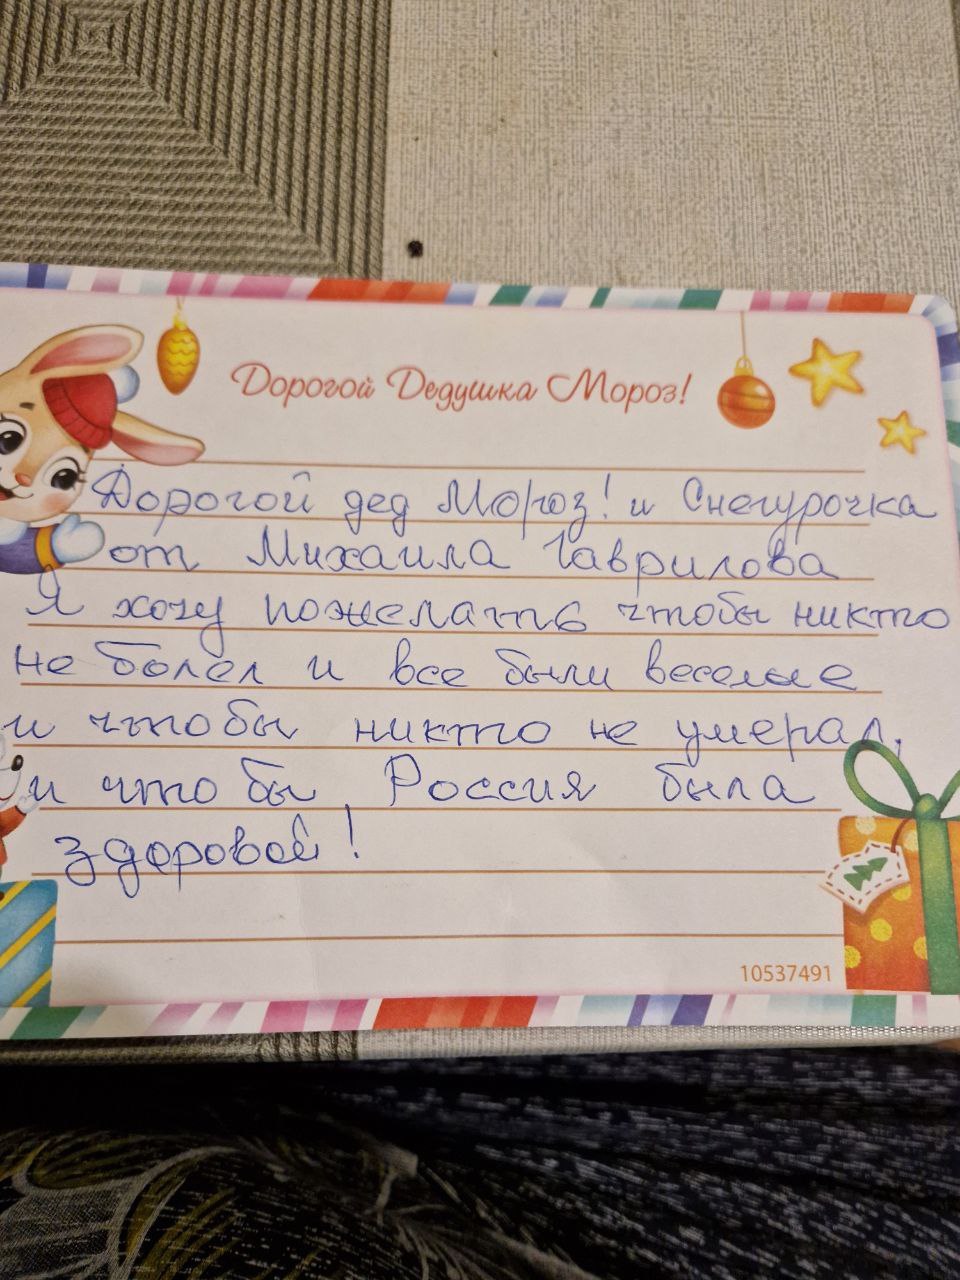 Дорогой Дедушка Мороз!
Дорогой дед Мороз! и Снегурочка
от Михаила Гаврилова
Я хочу пожелать чтобы никто
не болел и все были веселые
и чтобы никто не умерал,
и что бы Россия была
здоровой!
10537491